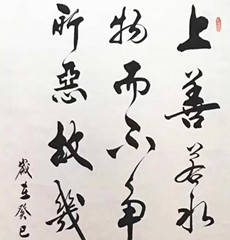 上善若水
物而不争
所恶故几
岁在癸巳